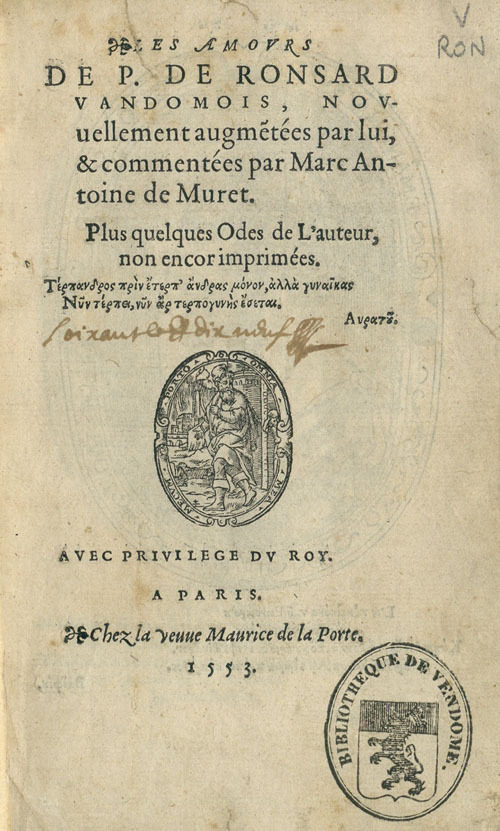 V
RON
❧LES AMOVRS
DE P. DE RONSARD
VANDOMOIS, NOV-
uellement augmẽtées par lui,
& commentées par Marc An-
toine de Muret.
Plus quelques Odes de L'auteur,
non encor imprimées.
Τέρπανδρος πρὶν ἔτερπ' ἄνδρας μόνον, ἀλλὰ γυναῖκας
Νῦν τέρπει, νῦν ἄρ τερπογυνὴς ἔσεται.
Αυρατοῦ.
soixante et dix neuf
PORTO OMNIA
MECVM MEA
AVEC PRIVILEGE DV ROY.
A PARIS.
❧Chez la veuue Maurice de la Porte.
1553.
BIBLIOTHEQUE DE VENDOME.